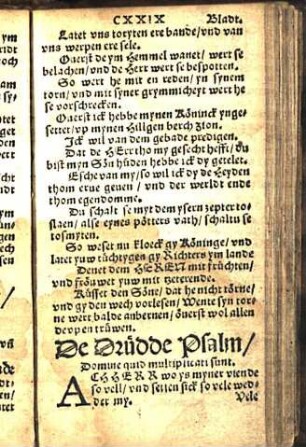 CXXIX Bladt.
Latet vns toryten ere bande/vnd van
vns werpen ere sele.
Ouerst de ym Hemmel wanet/ wert se
belachen/vnd de Herr wert se bespotten.
So wert he mit en reden/ yn synem
torn/vnd mit syner grymmicheyt wert he
se vorschrecken.
Ouerst ick hebbe mynen Köninck ynge-
settet/vp mynen Hilligen berch Zion.
Ick wil van dem gebade predigen.
Dat de HErr tho my gesecht hefft/ du
bist myn Sön hüden hebbe ick dy getelet.
Esche van my/so wil ick dy de Heyden
thom erue geuen/vnd der werldt ende
thom egendomme.
Du schalt se myt dem ysern zepter to-
slaen/alse eynes pötters vath/schaltu se
tosmyten.
So weset nu kloeck gy Köninge/vnd
latet yuw tüchtygen gy Richters ym lande
Denet dem HEREN mit früchten/
vnd fröuwet yuw mit zeterende.
Küsset den Söne/dat he nicht törne/
vnd gy den wech vorlesen/Wente syn tor-
ne wert balde anbernen/öuerst wol allen
de vp en trüwen.
De Drüdde Psalm/
Domine quid multiplicati sunt.
ACH HERR wo ys myner viende
so vell/vnd setten sick so vele wed-
der my. Vele